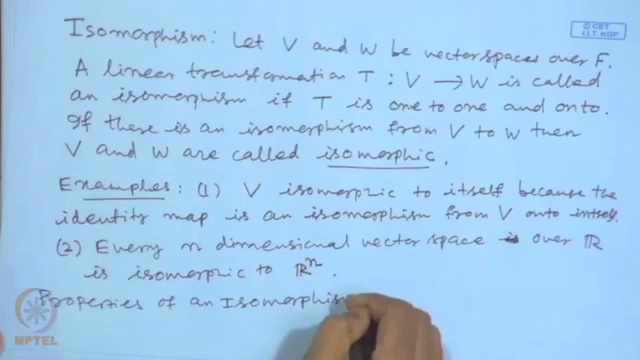 © CET
I.I.T. KGP
Isomorphism: Let V and W be vector spaces over F.
A linear transformation T : V → W is called
an isomorphism if T is one to one and onto.
If there is an isomorphism from V to W then
V and W are called isomorphic.
Examples: (1) V isomorphic to itself because the
identity map is an isomorphism from V onto intself.
(2) Every n dimensional vector space is over ℝ
is isomorphic to ℝⁿ.
Properties of an Isomorphis
NPTEL